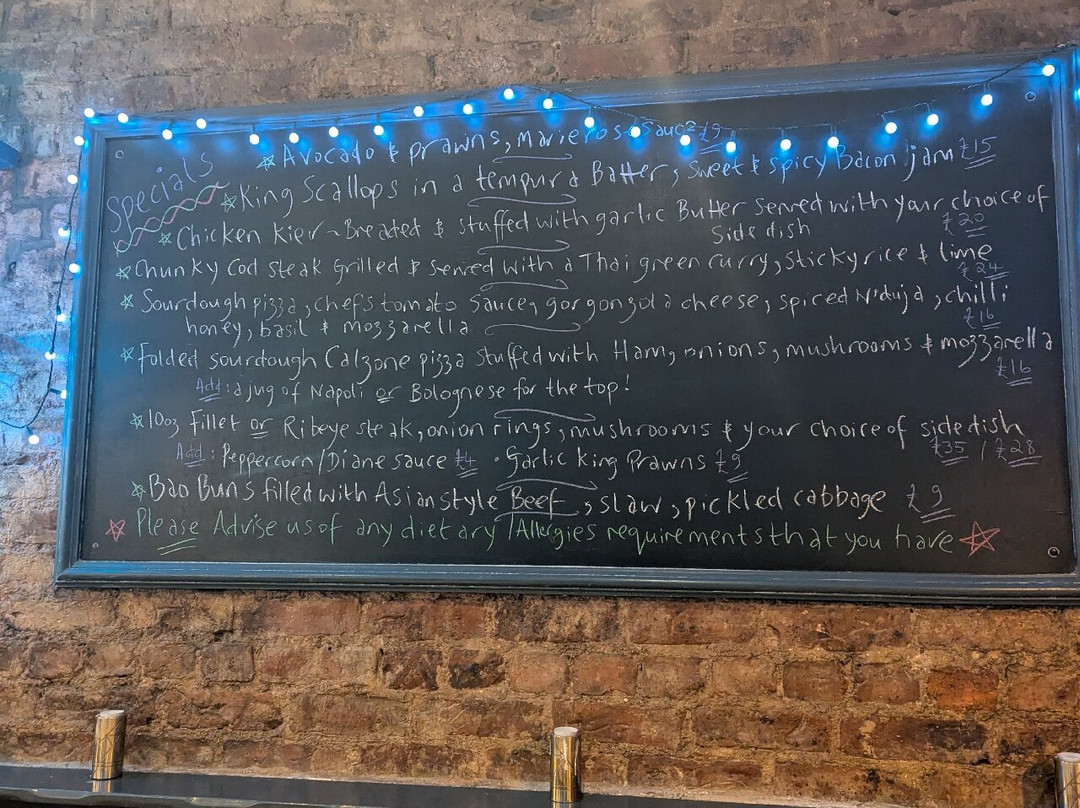 Specials
☆ Avocado & prawns, marierose sauce £9
☆ King Scallops in a tempura Batter, Sweet & spicy Bacon jam £15
☆ Chicken Kiev ~ Breaded & stuffed with garlic Butter Served with your choice of
Side dish £20
☆ Chunky Cod steak Grilled & Served with a Thai green curry, sticky rice & lime
£24
☆ Sourdough pizza, chefs tomato sauce, gorgonzola cheese, spiced N'duja, chilli
honey, basil & mozzarella £16
☆ Folded sourdough Calzone pizza stuffed with Ham, onions, mushrooms & mozzarella
£16
Add: a jug of Napoli or Bolognese for the top!
☆ 10oz Fillet or Ribeye steak, onion rings, mushrooms & your choice of side dish
£35 / £28
Add: Peppercorn/Diane sauce £4 · Garlic King Prawns £9
☆ Bao Buns filled with Asian style Beef, slaw, pickled cabbage £9
☆ Please Advise us of any dietary /Allergies requirements that you have ☆